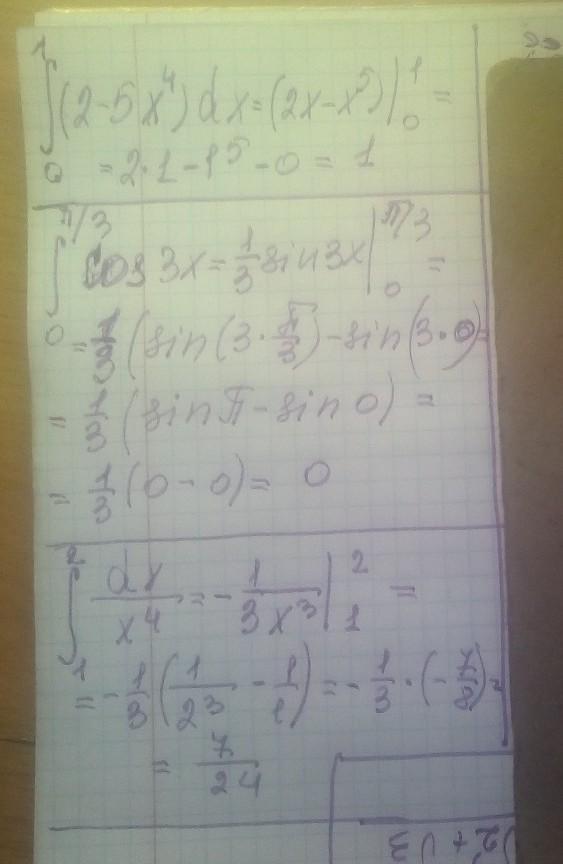 ∫₀¹ (2-5x⁴)dx=(2x-x⁵)|₀¹ =
=2·1-1⁵-0= 1
∫₀^(π/3) cos 3x=1/3 sin3x|₀^(π/3) =
=1/3 (sin(3·π/3)-sin(3·0)=
= 1/3 (sin π-sin 0) =
= 1/3 (0-0)= 0
∫₁² dx/x⁴ =- 1/3x³|₁² =
=-1/3 (1/2³ - 1/1)=-1/3·(-7/8)=
= 7/24